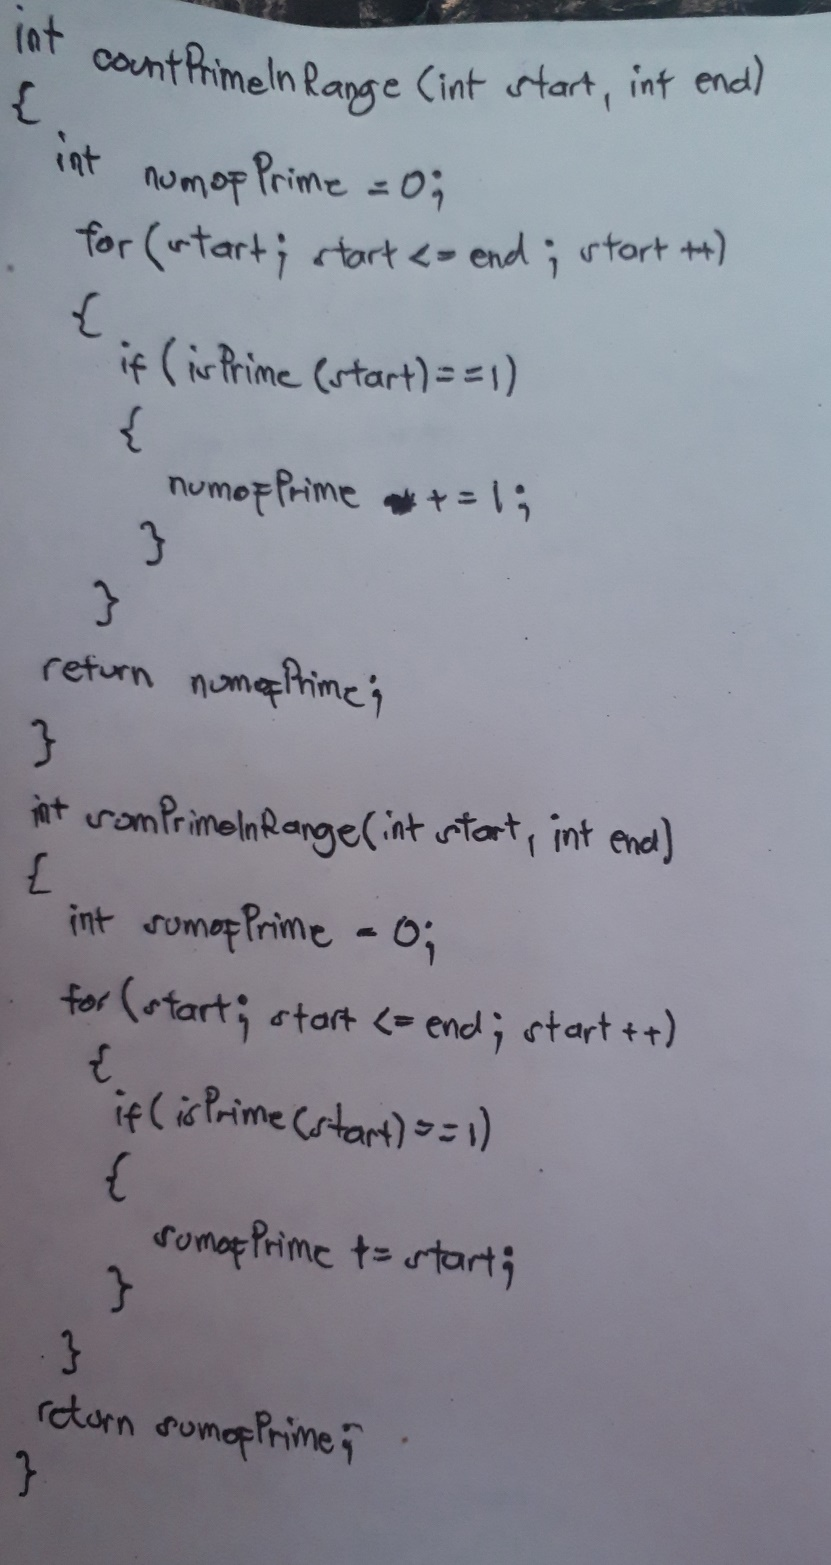 int countPrimeInRange (int start, int end)
{
int numofPrime = 0;
for (start; start <= end; start ++)
{
if (isPrime (start) == 1)
{
numofPrime += 1;
}
}
return numofPrime;
}
int sumPrimeInRange(int start, int end)
{
int sumofPrime = 0;
for (start; start <= end; start ++)
{
if (isPrime (start) == 1)
{
sumofPrime += start;
}
}
return sumofPrime;
}